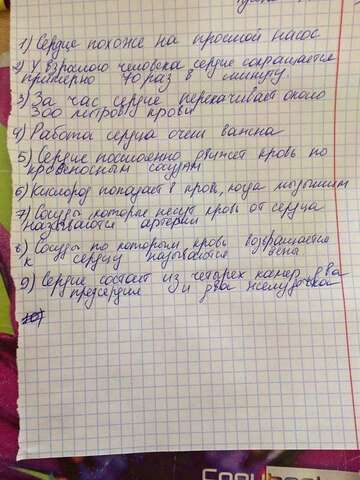 1) Сердце похоже на простой насос
2) У взрослого человека сердце сокращается
примерно 70 раз в минуту.
3) За час сердце перекачивает около
300 литров крови
4) Работа сердца очень важна
5) Сердце постоянно движет кровь по
кровеносным сосудам
6) Кислород попадает в кровь, когда мы дышим
7) Сосуды, которые несут кровь от сердца
называются артерии
8) Сосуды по которым кровь возвращается
к сердцу называются вены
9) Сердце состоит из четырех камер, два
предсердия и два желудочка
10)